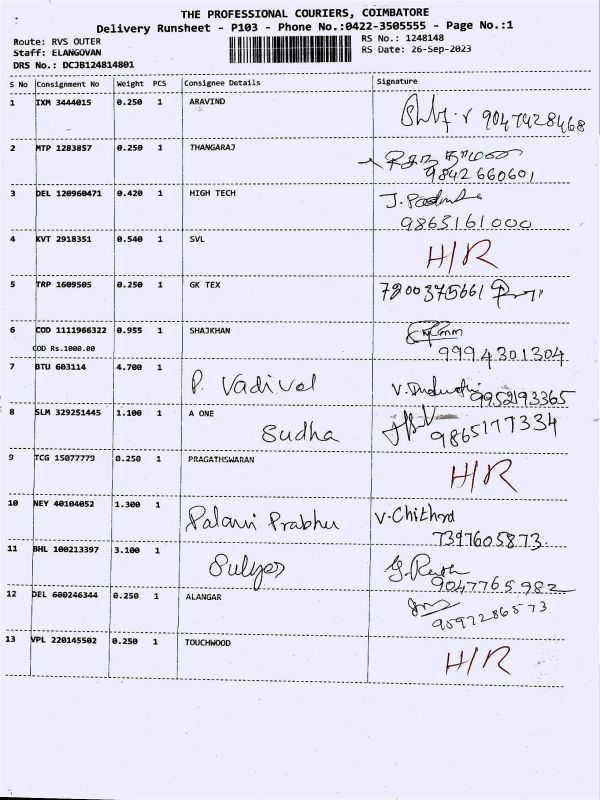 THE PROFESSIONAL COURIERS, COIMBATORE
Delivery Runsheet - P103 - Phone No.:0422-3505555 - Page No.:1
Route: RVS OUTER
Staff: ELANGOVAN
DRS No.: DCJB124814801
RS No.: 1248148
RS Date: 26-Sep-2023
S No Consignment No Weight PCS Consignee Details Signature
1 IXM 3444015 0.250 1 ARAVIND
9047428468
2 MTP 1283857 0.250 1 THANGARAJ
9842660601
3 DEL 120960471 0.420 1 HIGH TECH
9863161000
4 KVT 2918351 0.540 1 SVL H/R
5 TRP 1609505 0.250 1 GK TEX 7200375661
6 COD 1111966322 0.955 1 SHAJKHAN
COD Rs.1000.00 9994301304
7 BTU 603114 4.700 1
P Vadivel 9952193365
8 SLM 329251445 1.100 1 A ONE
Sudha 9865177334
9 TCG 15077779 0.250 1 PRAGATHSWARAN H/R
10 NEY 40104052 1.300 1
Palani Prabhu V.Chithra
7397605873.
11 BHL 100213397 3.100 1
9047765982
12 DEL 600246344 0.250 1 ALANGAR
9597286573
13 VPL 220145502 0.250 1 TOUCHWOOD H/R